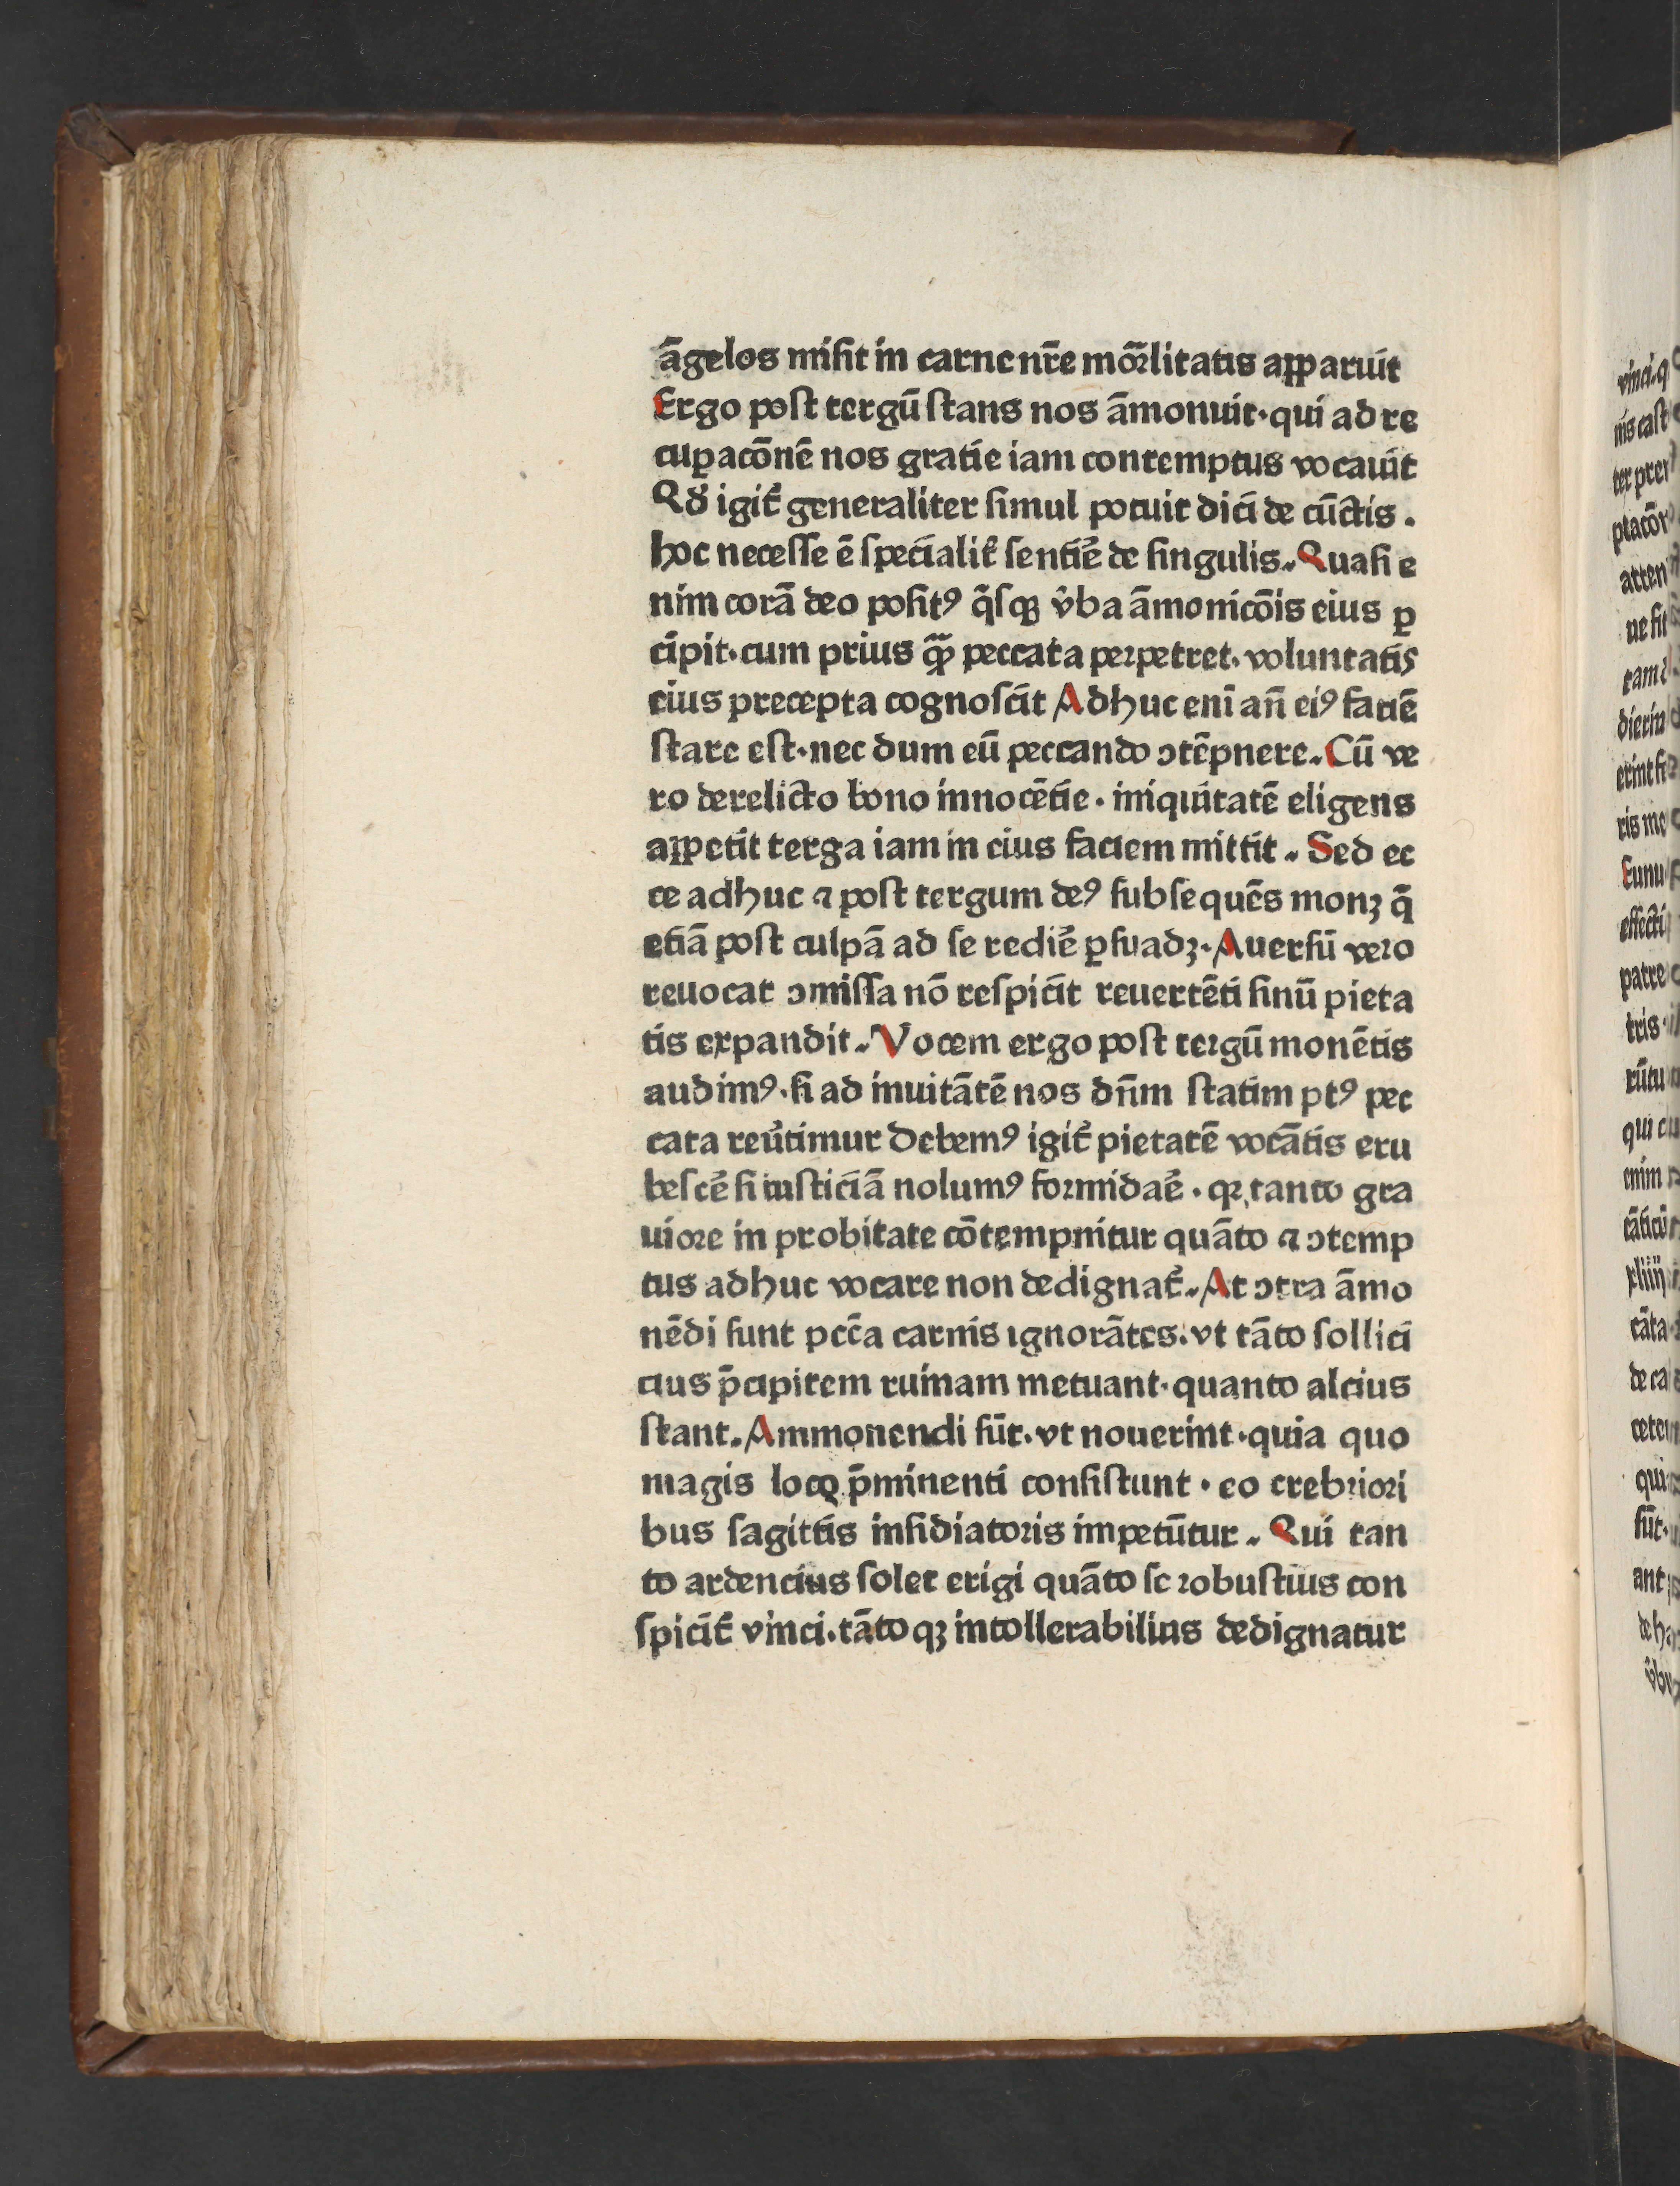 āgelos misit in carne nr̄e mor̄litatis apparuit
Ergo post tergū stans nos āmonuit·qui ad re
cuꝑacōnē nos gratie iam contemptus vocauit
Qđ igit̄ generaliter simul potuit dici de cūctis .
hoc necesse ē specialit̄ sentiē de singulis. Quasi e
nim corā deo posit⁹ q̄sqꝫ v̄ba āmonicōis eius ꝑ
cipit·cum prius qꝫ̄ peccata perpetret. voluntatis
eius precepta cognoscit Adhuc eni an̄ ei⁹ faciē
stare est·nec dum eū peccando ↄtēpnere. Cū ve
ro derelicto bono innocētie . iniquitatē eligens
appetit terga iam in eius faciem mittit . Sed ec
ce adhuc ⁊ post tergum de⁹ subsequēs monꝫ q̄
etiā post culpā ad se rediē ꝑsuadꝫ·Auersū vero
reuocat ↄmissa nō respicit reuertēti sinū pieta
tis expandit. Vocem ergo post tergū monētis
audim⁹·si ad inuitātē nos dn̄m statim pt⁹ pec
cata reūtimur Debem⁹ igit̄ pietatē vocātis eru
bescē si iusticiā nolum⁹ formidaē . qꝛ tanto gra
uiore in probitate cōtempnitur quāto ⁊ ↄtemp
tus adhuc vocare non dedignat̄. At ↄtra āmo
nēdi sunt pcc̄a carnis ignorātes. vt tāto sollici
cius p̄cipitem ruinam metuant·quanto alcius
stant. Ammonendi sūt. vt nouerint·quia quo
magis loco p̄minenti consistunt · eo crebriori
bus sagittis insidiatoris impetūtur . Qui tan
to ardencius solet erigi quāto se robustius con
spicit̄ vinci. tāto qꝫ intollerabilius dedignatur